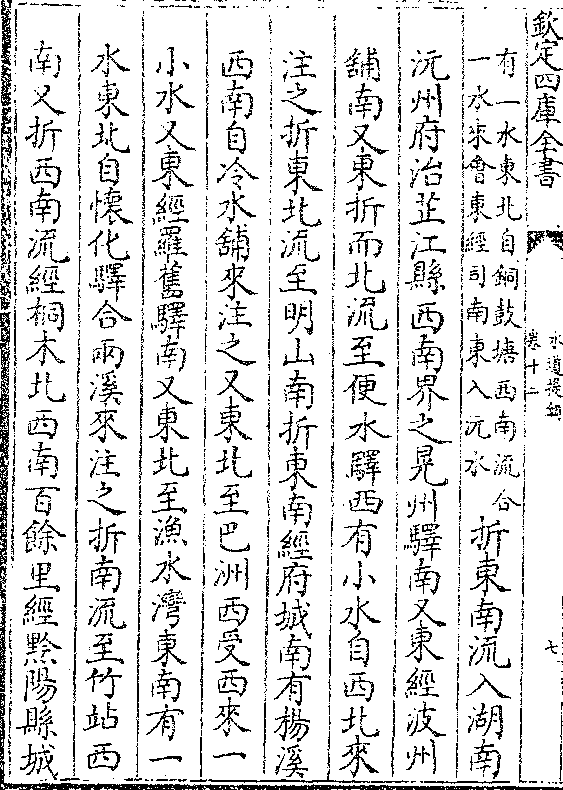 欽定四庫全書
水道提綱
卷十二
七
有一水東北自銅鼓塘西南流合
一水來會東經司南東入沅水
折東南流入湖南
沅州府治芷江縣西南界之晃州驛南又東經波州
舖南又東折而北流至便水驛西有小水自西北來
注之折東北流至明山南折東南經府城南有楊溪
西南自冷水舖來注之又東北至巴洲西受西來一
小水又東經羅舊驛南又東北至漁水灣東南有一
水東北自懷化驛合兩溪來注之折南流至竹站西
南又折西南流經桐木北西南百餘里經黔陽縣城